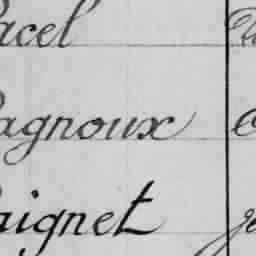 acel
agnoux
aignet